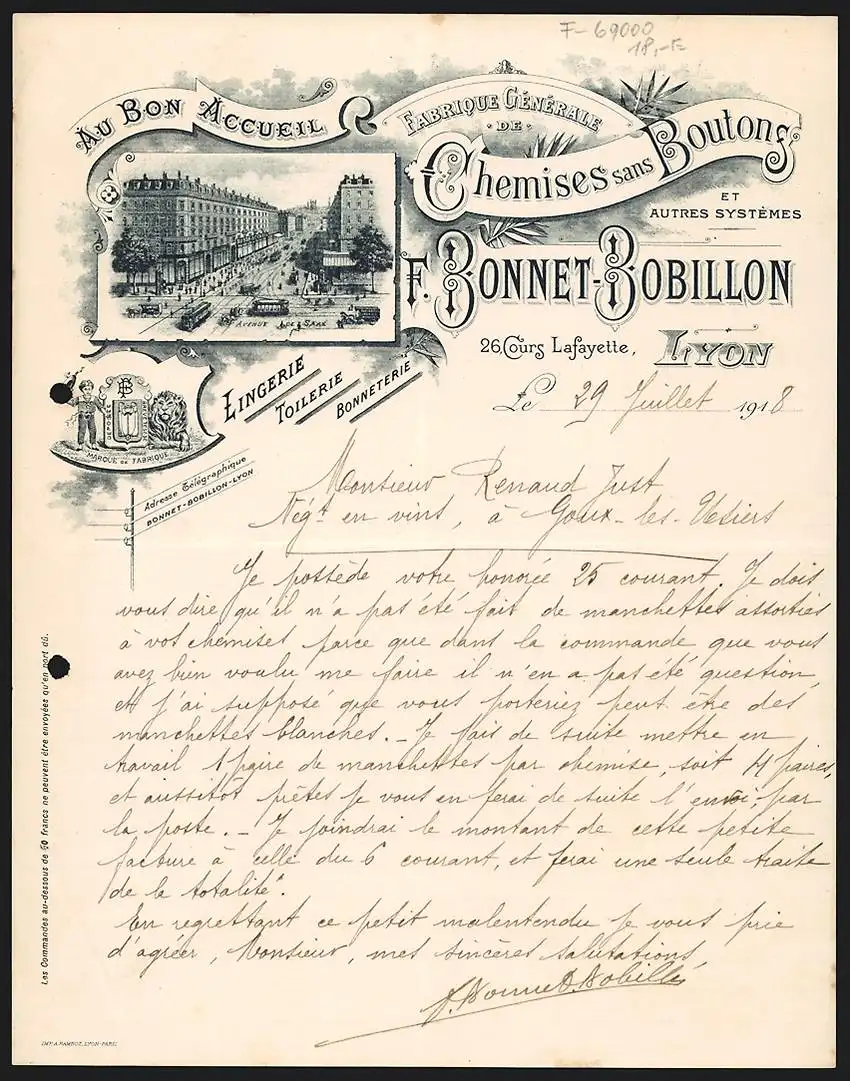 F-69000
18,-
AU BON ACCUEIL
FABRIQUE GÉNÉRALE
DE
Chemises sans Boutons
ET
AUTRES SYSTÈMES
F. BONNET-BOBILLON
26, Cours Lafayette, LYON
AVENUE DE SAXE
LINGERIE
TOILERIE
BONNETERIE
FB
MARQUE DE FABRIQUE
Adresse Télégraphique
BONNET-BOBILLON-LYON
Le 29 Juillet 1918
Monsieur Renaud Just
Négt en vins, à Goux-les-Usiers
Je possède votre honorée 25 courant. Je dois
vous dire qu'il n'a pas été fait de manchettes assorties
à vos chemises parce que dans la commande que vous
avez bien voulu me faire il n'en a pas été question,
et j'ai supposé que vous porteriez peut être des
manchettes blanches. - Je fais de suite mettre en
travail 1 paire de manchettes par chemise, soit 4 paires,
et aussitôt prêtes je vous en ferai de suite l'envoi par
la poste. - Je joindrai le montant de cette petite
facture à celle du 6 courant, et ferai une seule traite
de la totalité.
En regrettant ce petit malentendu je vous prie
d'agréer, Monsieur, mes sincères salutations
F. Bonnet-Bobillon
Les Commandes au-dessous de 50 francs ne peuvent être envoyées qu'en port dû.
IMP. A. RAMBOZ, LYON-PARIS